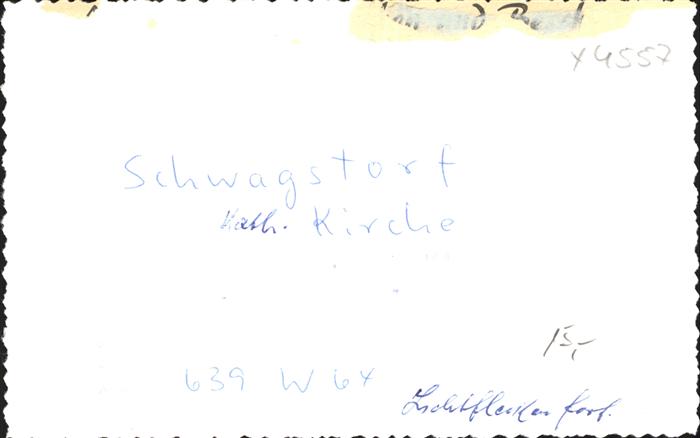 und
X4557
Schwagstorf
Kath. Kirche
15,-
639 W 64
Lichtflecken fort.